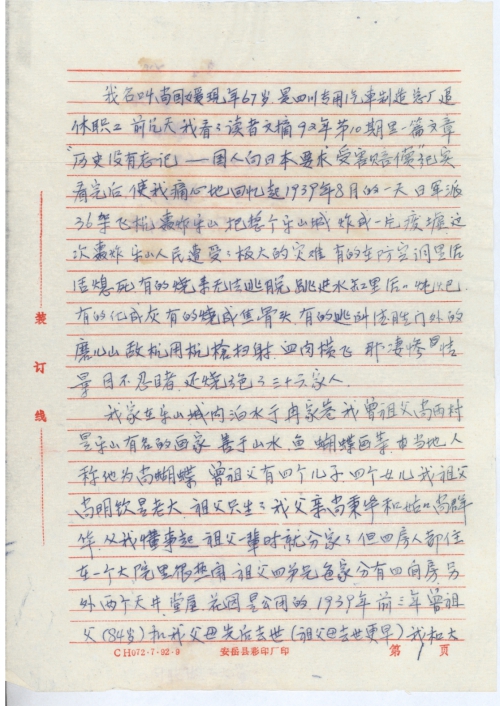 我名叫尚国媛现年67岁,是四川专用汽车制造总厂退
休职工 前几天我看了读者文摘92年第10期里一篇文章
"历史没有忘记——国人向日本要求受害赔偿"纪实
看完后,使我痛心地回忆起1939年8月的一天 日军派
36架飞机轰炸乐山 把整个乐山城炸成一片废墟这
次轰炸乐山人民遭受了极大的灾难 有的在防空洞里活
活熄死有的烧来无法逃脱 跳进水缸里后
有的化成灰有的烧成焦骨头,有的逃到 门外的
山敌机用机枪扫射,血肉横飞 那凄惨的情
景目不忍睹,还烧绝了三十六家人。
我家在乐山城内泊水 冉家巷 我曾祖父尚西村
是乐山有名的画家 善于山水、鱼、蝴蝶画等,由当地人
称他为尚蝴蝶 曾祖父有四个儿子,四个女儿我祖父
尚明钦是老大,祖父只生了我父亲尚秉华和姑妈尚群
华,从我懂事起 祖父一辈时就分家了但四房人都住
在一个大院里很热闹,祖父四弟兄各家分有四间房,另
外两个天井,堂屋,花园是公用的 1939年前三年曾祖
父(84岁)和我父母先后去世(祖父母去世更早)我和大
装
订
线
CH072·7·92·9
安岳县彩印厂印
第 1 页